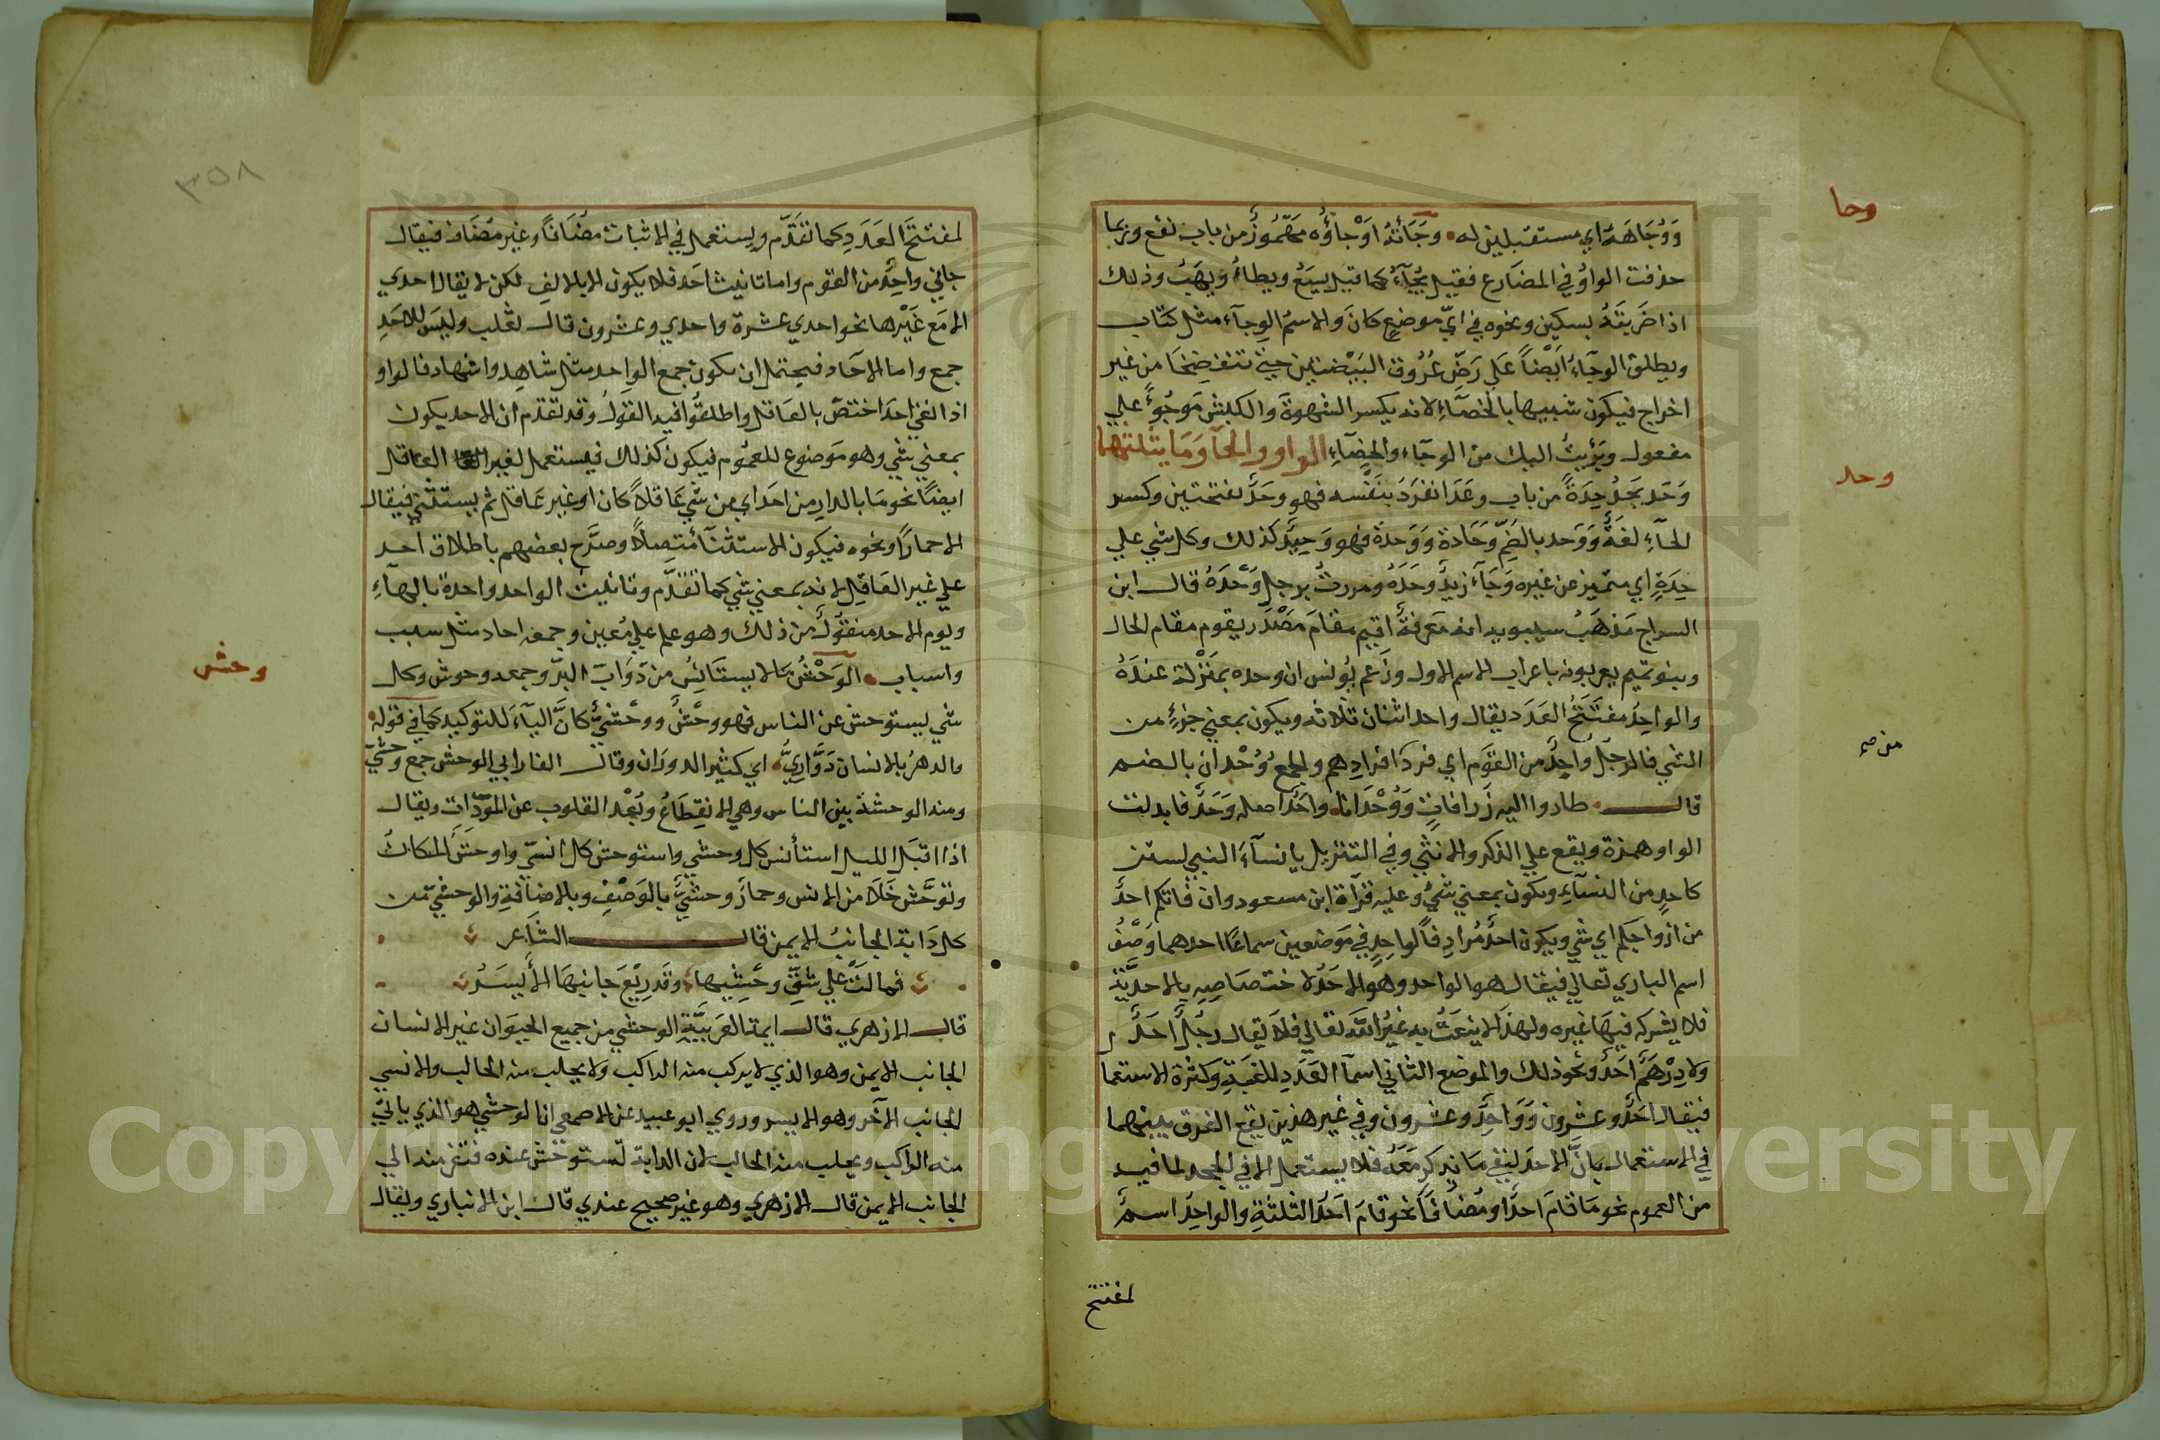 وجا
وَوُجَاهَهُ اي مستقبلين له • وجَأْتُهُ اوْجَأؤُه مَهْمُوزٌ من باب نفع وربما
حذفت الواوُ في المضَارع فقيل يَجَآءُ كما قيل يسَعُ ويطاءُ ويهَبُ وذلك
اذا ضَربتَهُ بسكين ونحوه في ايّ موضعٍ كانَ والاسمُ الوِجآء مثل كتاب
ويطلق الوجآءُ ايَضًا عَلي رَضِّ عُرُوق البَيْضتين حتي تنفضخا من غير
اخراج فيكون شبيها بالخصَآءِ لانه يكسر الشهوةَ والكبش مَوجُوءٌ علي
مفعول وبَرِئتُ اليك من الوجآء والخِصَآءِ الواو والحآ وَمَا يثلثهما
وحد
وَحَد يَحِدُ حِدَةً من باب وعَدَ انفرَدَ بنَفْسه فهو وحَدٌ بفتحتين وكسر
الحآءِ لغَةٌ وَوَحد بالضَمِّ وَحَادة وَوَحدة فهو وَحِيدٌ كذلك وكل شي علي
حِدَةٍ اي متميز عن غيره وَجَآءَ زيدٌ وحَدَهُ ومررتُ برجلٍ وَحْدَهُ قال ابن
السراج مَذهَبُ سيبويه انه مَعرفةٌ اقيم مقامَ مَصْدَر يقوم مقام الحال
وبنو تميم يعربونه باعراب الاسم الاول وزعَم يُونس ان وحده بمَنْزلة عندَهُ
والواحِدُ مفتَتَحُ العَدَد يقال واحد اثنان ثلاثه ويكون بمعني جزءٍ من
الشي فالرجُل وَاحِدٌ من القوَم اي فرد افرادِهم والجمعُ وُحْدَان بالضم
من صح
قال • طاروا اليه زَرافاتٍ وَوُحْدَانا • واحَدٌ اصله وَحَدٌ فابدلت
الواو همزة ويقع علي الذكر والانثي وفي التنزيل يا نسآءَ النبي لستن
كاحدٍ من النسآءِ ويكون بمعني شيٌ وعليه قرآة ابن مسعود وان فاتكم احدٌ
من ازواجكم اي شي ويكون احدٌ مُرادِفاً لواحِدٍ في مَوضعين سماعًا احدهما وَصْفُ
اسم الباري تعالي فيقال هو الواحد وهو الاحَدُ لاختصَاصِهِ بالاحديَّة
فلا يشركه فيهَا غيره ولهذَا لا ينعَتُ به غيرُ اللهَ تعَالي فلا يَقال رجُلٌ احَدٌ
ولا دِرْهَمٌ احَدٌ ونحو ذلك والموضع الثاني اسمآ العَدَدِ للغلبَةِ وَكثرة الاستعما
فيقال احَدٌ وعشرون وَوَاحِدٌ وعشرون وفي غير هذين يقع الفرق بينهما
في الاستعمال بانَّ الاحد لنفي مَا يذكر مَعَهُ فلا يستعمل الا في الجحد لما فيه
من العموم نحو مَا قامَ احدٌ او مُضَافًا نحو قامَ احَدُ الثلثةِ والواحِدُ اسمٌ
لمفتتح
٣٥٨
لمفتتح العَدَدِ كما تقَدّم ويستعمل في الاثبات مضَافاً وغير مضَاف فيقال
جاني واحِدٌ من القوم واما تانيث احَد فلا يكون الا بالالف لكن لا يقال احدي
الا مَع غَيْرها نحو احدي عشرة واحدي وعشرون قال ثعْلب وليَس للاحَدِ
جمع واما الآحاد فيحتمل ان يكون جمع الواحد مثل شاهِد واشهاد قالوا و
اذا نفي احَد اختصَّ بالعَاقل واطلقُوا فيه القَولُ وقد تقدم ان الاحد يكون
بمعني شي وهو مَوضوع للعُموم فيكون كذلك فيستعمل لغير العاقل
ايضًا نحو مَا بالدار من احَد اي من شي عَاقلاً كان او غير عَاقل ثم يستثني فيقال
الا حمارًا ونحوه فيكون الاستثنآءُ متصِلاً وصَرَّح بعضهم باطلاق احد
علي غير العَاقِل لانه بمعني شي كما تقدّم وتانيث الواحد واحدة بالهآءِ
ويوم الاحد منقولٌ من ذلك وهو علم علي مُعين وجمعه احاد مثل سبب
واسباب • الوَحْشُ مَا لا يستَانِسُ من دَوَابّ البرّ وجمعه وحوش وكل
وحش
شي يستوحش عن الناس فهو وحْشٌ ووحْشيٌّ كانَّ اليآءَ للتوكيد كما في قوله •
والدهرُ بالانسان دَوَّاريُّ • اي كثير الدوران وقال الفارابي الوحش جمع وحْشيّ
ومنه الوحشة بين الناس وهي الانقِطَاعُ وبُعْد القلوب عن المودّات ويقال
اذا اقبَل الليل استأنس كل وحشي واستوحش كل انسيّ واوحَشَ المكانُ
وتوَحَّش خَلَا من الانس وحمارٌ وحْشيٌّ بالوَصْفِ وبالاضَافةِ والوحشيّ من
كل دَابة الجانبُ الايمن قال الشَاعر
فمالَتْ علي شقِّ وحْشِيها وقَد رِيْعَ جانبهَا الأَيسَرُ
قال الازهري قال ايمة العَربيَّة الوحشي من جميع الحيوَان غير الانسان
الجانب الايمن وهو الذي لا يركب منه الراكب وَلا يحلب منه الحالب والانسي
الجانب الآخر وهو الايسر وروي ابو عبيد عن الاصمعي ان الوحشي هو الذي ياتيّ
منه الراكب ويحلب منه الحالب لان الدابة تستوحش عنده فتفر منه الي
الجانب الايمن قال الازهري وهو غير صحيح عندي قال ابن الانباري ويقال
Copyright © King Saud University